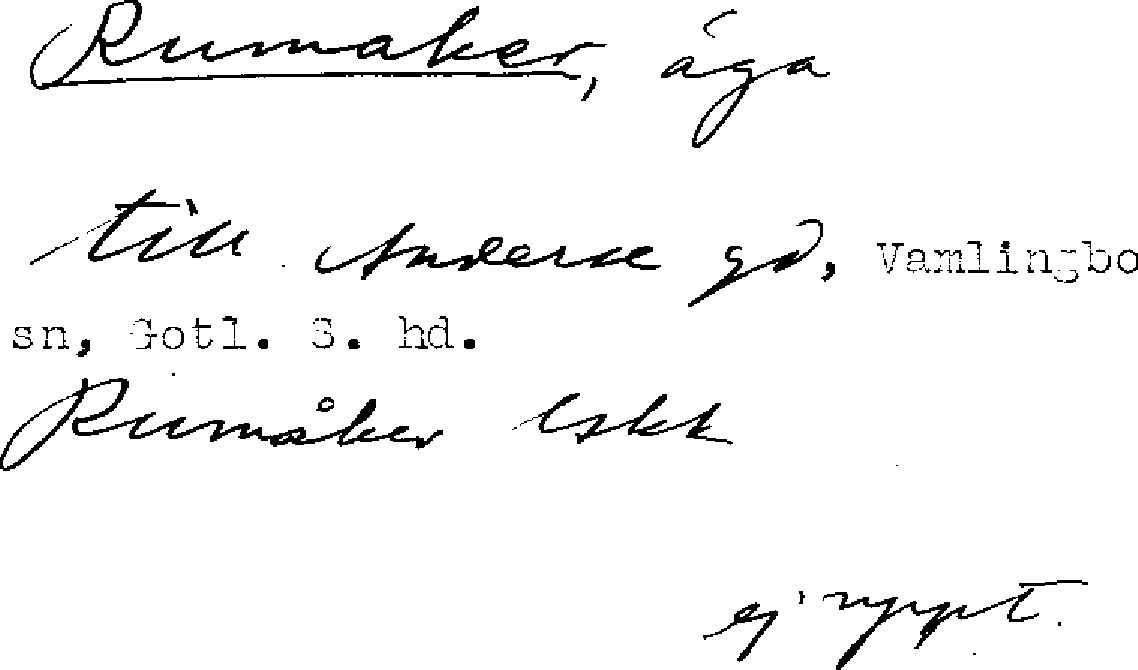 Rumaker, äga
till Anderse gd, Vamlingbo
sn, Gotl. S. hd.
Rumåker lskk
ej uppt.